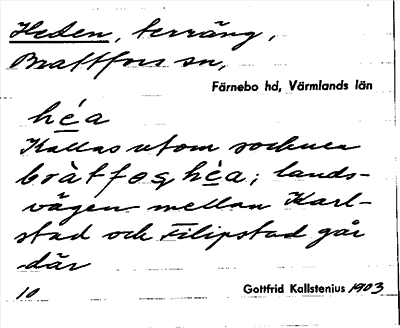 Heden, terräng,
Brattfors sn,
Färnebo hd, Värmlands län
héa
Kallas utom socknen
bràtfoșhéa; lands-
vägen mellan Karl-
stad och Filipstad går
där
10
Gottfrid Kallstenius 1903